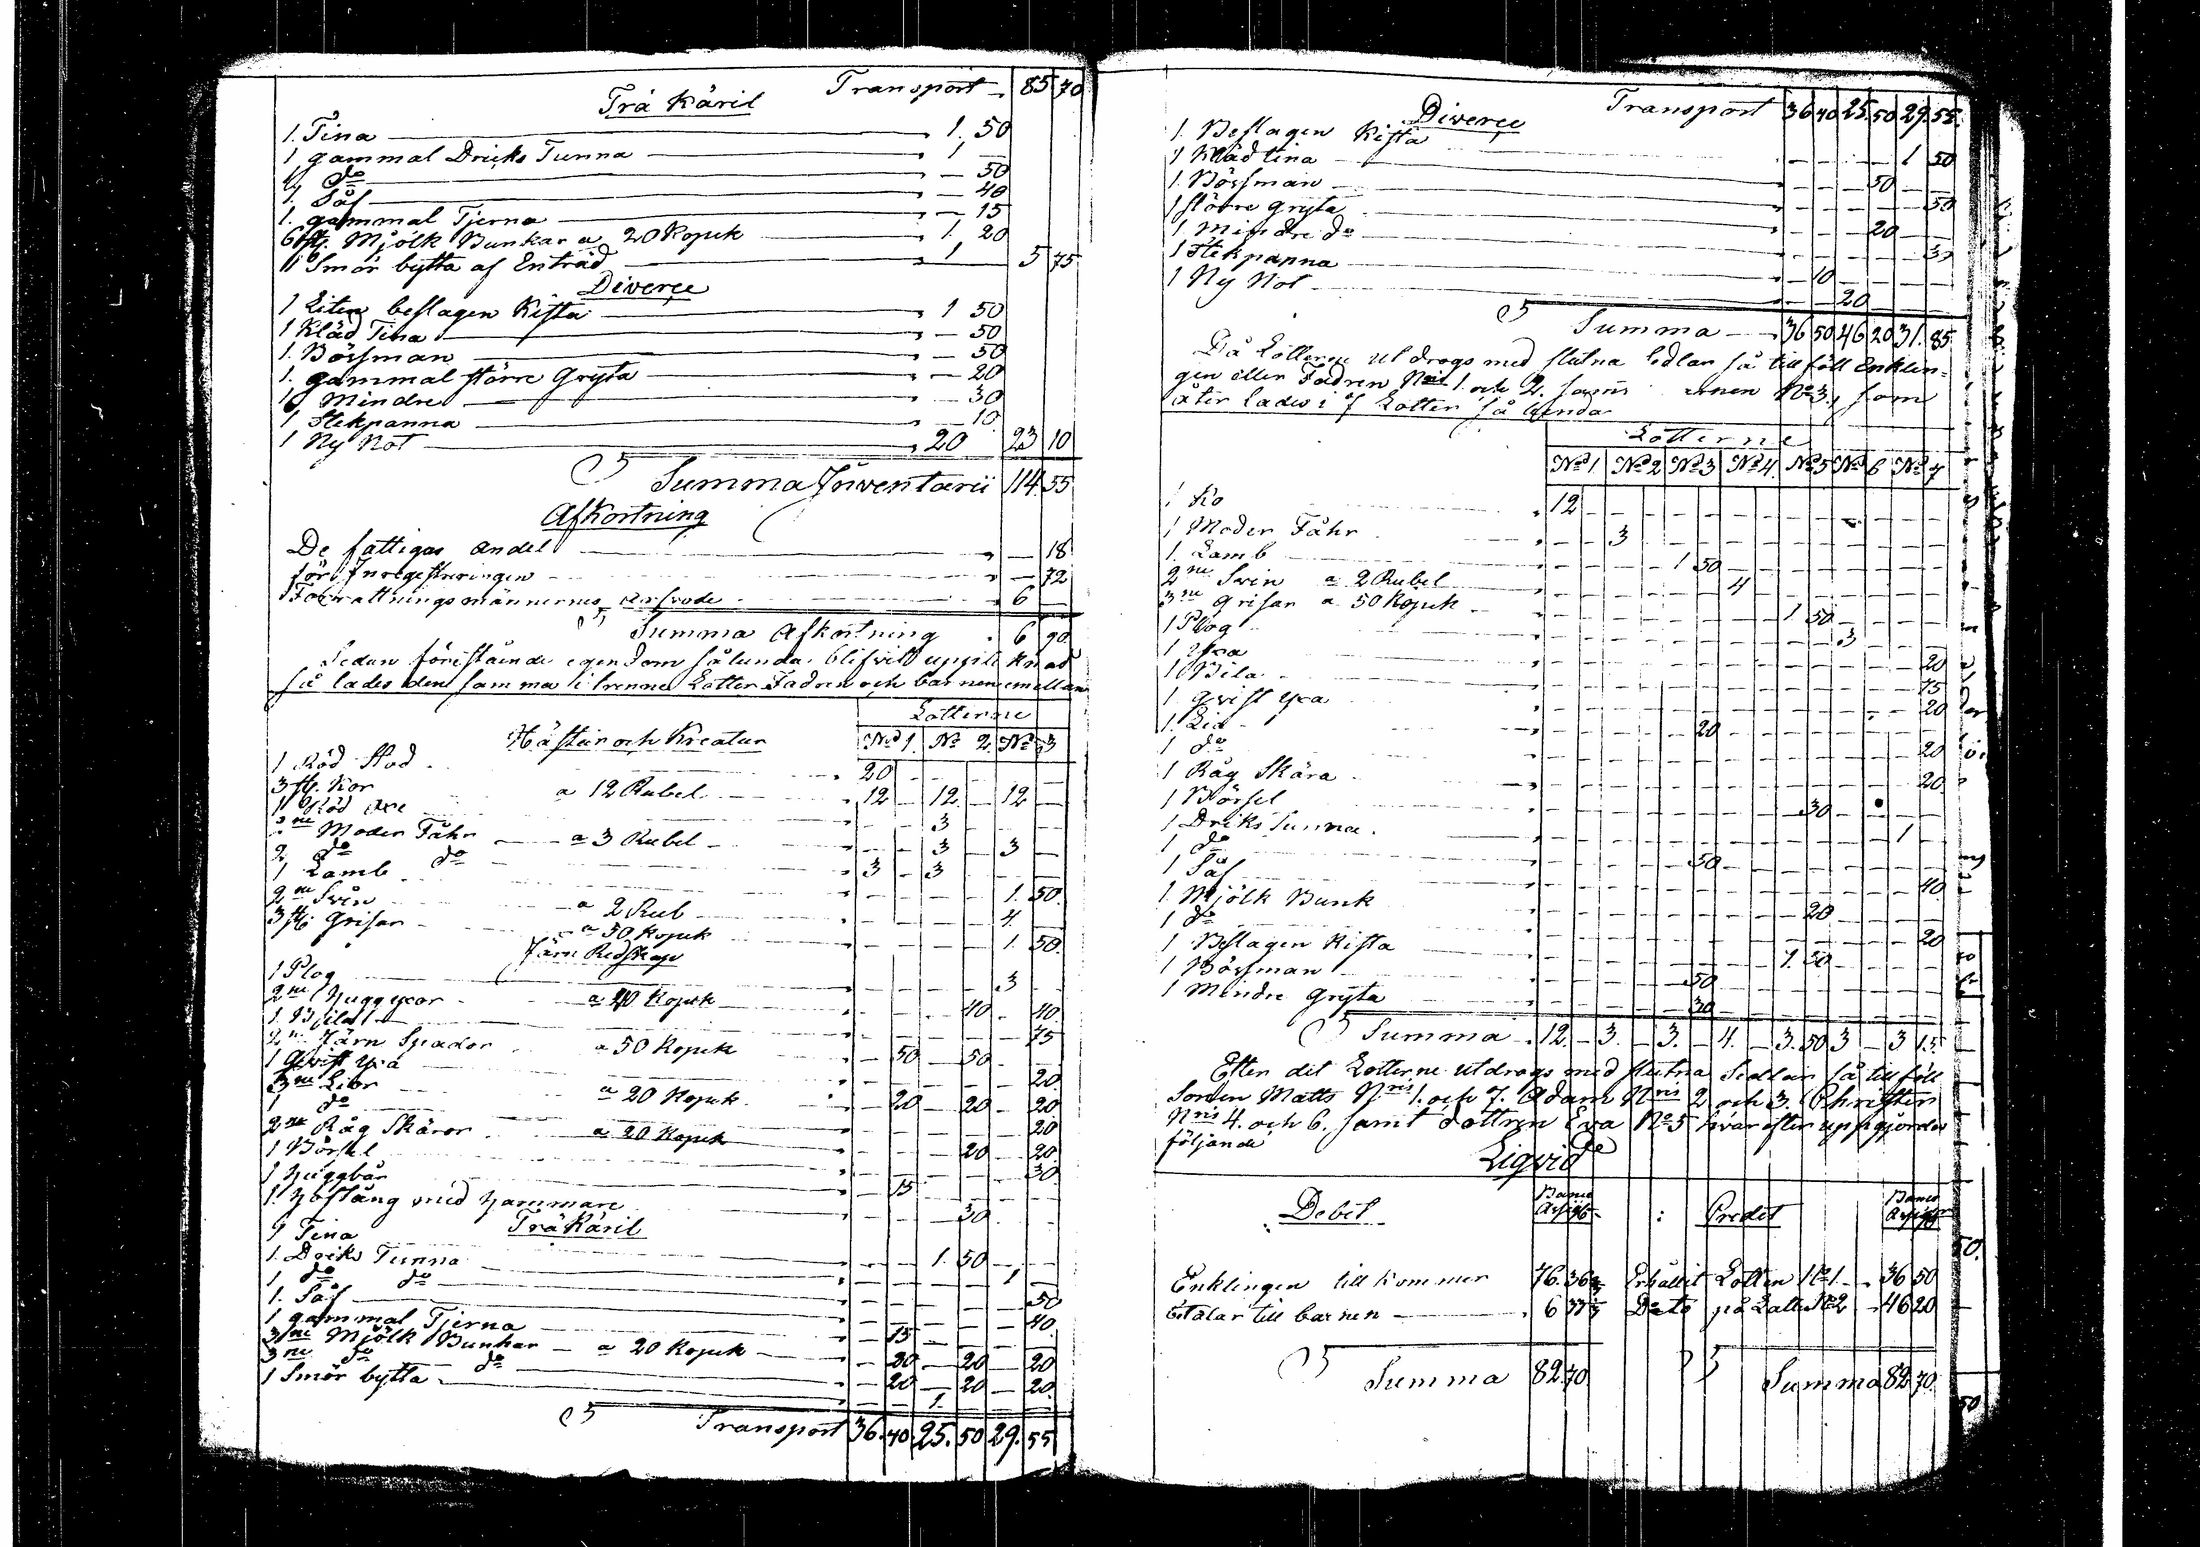 Transport 85 70
Trä Käril
1. Tina 1. 50
1 gammal Dricks Tunna 1 —
1 do — 50
1. Såf — 40
1. gammal Tjerna — 15
6 st. Mjölk Bunkar a 20 Kopek 1. 20
1 Smör bytta af Enträd 1 5 75
Diverce
1 Liten beslagen Kista 1 50
1 Kläd Tina — 50
1. Bössman — 50
1. gammal större Gryta — 20
1 Mindre — 30
1 Stekpanna — 10
1 Ny Not 20 23 10
Summa Inventarii 114. 55
Afkortning
De fattigas andel — 18
för Inregistreringen — 72
Förrattningsmännernes arfvode 6 —
Summa Afkortning 6 90
Sedan förestående egendom sålunda blifvit
så lades den samma i trenne Lotter Fadren och barnen emellan
Lotterne
Hästar och Kreatur No 1. No 2. No 3
1 Röd Stod 20
3 st. Kor a 12 Rubel 12 — 12 — 12 —
1 Röd 3
2ne Moder Fåhr a 3 Rubel 3 3
2 do do 3 — 3
1 Lamb 1. 50.
2ne Svin a 2 Rub 4
3 st. Grisar a 50 Kopek 1. 50.
Järn Redskap
1 Plog 3
2ne Huggyxor a 40 Kopek 40 — 40
1. Bila 75
2ne Järn Spador a 50 Kopek 50 — 50
1 Qvist Yxa 20
3ne Liar a 20 Kopek 20 — 20 — 20
1 do 20
2ne Råg Skäror a 20 Kopek 20 — 20
1 Börsel 30
1 Huggbår 15
1. Hoftång med Hammare 30
Trä Käril
1 Tina 1. 50
1. Driks Tunna 1
1 do do 50
1. Såf 40
1 gammal Tjerna 15
3ne Mjölk Bunkar a 20 Kopek 20 — 20 — 20
3ne do do 20 — 20 — 20
1 Smör bytta 1
Transport 36. 40. 25. 50 29. 55
Transport 36 40 25. 50 29. 55.
Diverce
1. Beslagen Kista 1 50
1 Kläd tina 50
1. Bössman 50
1 större gryta 20
1 Mindre do 3
1 Stekpanna 10
1 Ny Not 20
Summa 36 50 46 20 31. 85
Då Lotterne utdrogs med slutna sedlar så tillföll Enklin-
gen eller Fadren 1. och 2. No 3., som
åter lades i 7 Lotter så
Lotterne
No 1 No 2 No 3 No 4. No 5 No 6 No 7
1 Ko 12
1 Moder Fåhr 3
1. Lamb 1 50
2ne Svin a 2 Rubel 4
3ne Grisar a 50 Kopek 1. 50
1 Plog 3
1 Yxa 20
1 Bila 75
1 Qvist yxa 20
1. Lia 20
1 do 20
1 Råg Skära 20
1 Börsel 30
1 Driks Tunna 1
1 do 50
1 Såf 40
1. Mjölk Bunk 20
1 do 20
1 Beslagen Kista 1. 50
1 Bössman 50
1 Mindre Gryta 30
Summa 12. — 3. — 3. — 4. — 3. 50 3 — 3 15
Efter det Lotterne utdrogs med slutna Sedlar så tillföll
Sonen Matts Nris 1. och 7. Adam Nris 2 och 3. Christer
Nris 4. och 6. samt dottren Eva No 5 hvarefter uppgjordes
följande
Liqvid
Debit Banco Credit Banco
Enklingen tillkommer 76. 36 Erhållit Lotten No 1. 36 50
Betalar till barnen 6 Dito på Lotten No 2 46 20
Summa 82 70 Summa 82 70